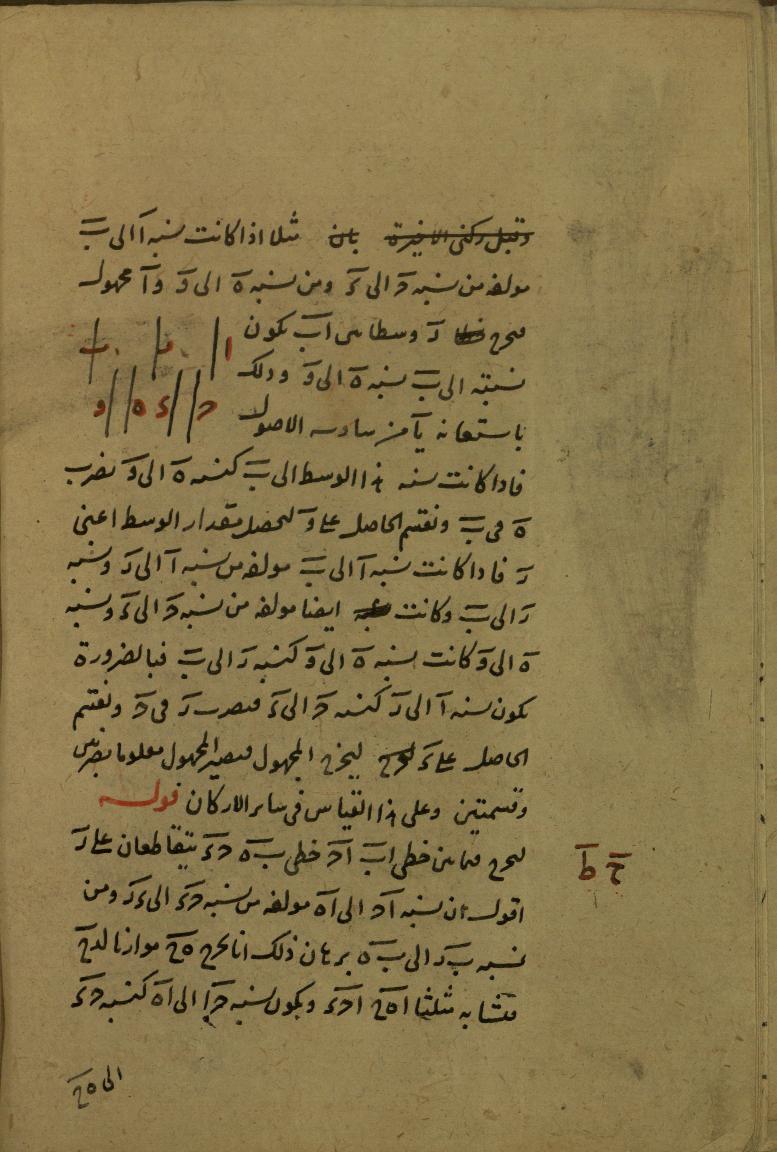 وقبل ركنى الاخيرة بان مثلا اذا كانت نسبه آ الى ب
مولفه من نسبه حـ الى ء ومن نسبه ه الى و و آ مجهول
فنخرج ر وسطا بين ا ب يكون
ا
نسبته الى ب نسبه ه الى و وذلك
باستعانه يا من سادسه الاصول
حـ ء ه و
فاذا كانت نسبه هذا الوسط الى ب كنسبه ه الى و نضرب
ه فى ب ونقسم الحاصل على و ليحصل مقدار الوسط اعنى
ر فاذا كانت نسبه آ الى ب مولفه من نسبه آ الى ر ونسبه
ر الى ب وكانت ايضا مولفه من نسبه حـ الى ء ونسبه
ه الى و كانت نسبه ه الى و كنسبه ر الى ب فبالضرورة
يكون نسبه آ الى ر كنسبه حـ الى ء فنضرب ر فى حـ ونقسم
الحاصل على ء ليخرج المجهول فيصير المجهول معلوما بضربين
وقسمتين وعلى هذا القياس فى ساير الاركان قوله
ليخرج فيما بين خطى ا ب ا حـ خطى ب ه حـ ء يتقاطعان على ر
اقول ان نسبه ا حـ الى ا ه مولفه من نسبه حـ ء الى ء ر ومن
نسبه ب ر الى ب ه برهان ذلك انا نخرج ه ح موازيا لـ ء ح
فتشابه مثلثا ا ه ح ا حـ ء ويكون نسبه حـ ا الى ا ه كنسبه حـ ء
الى ه ح
ح ط